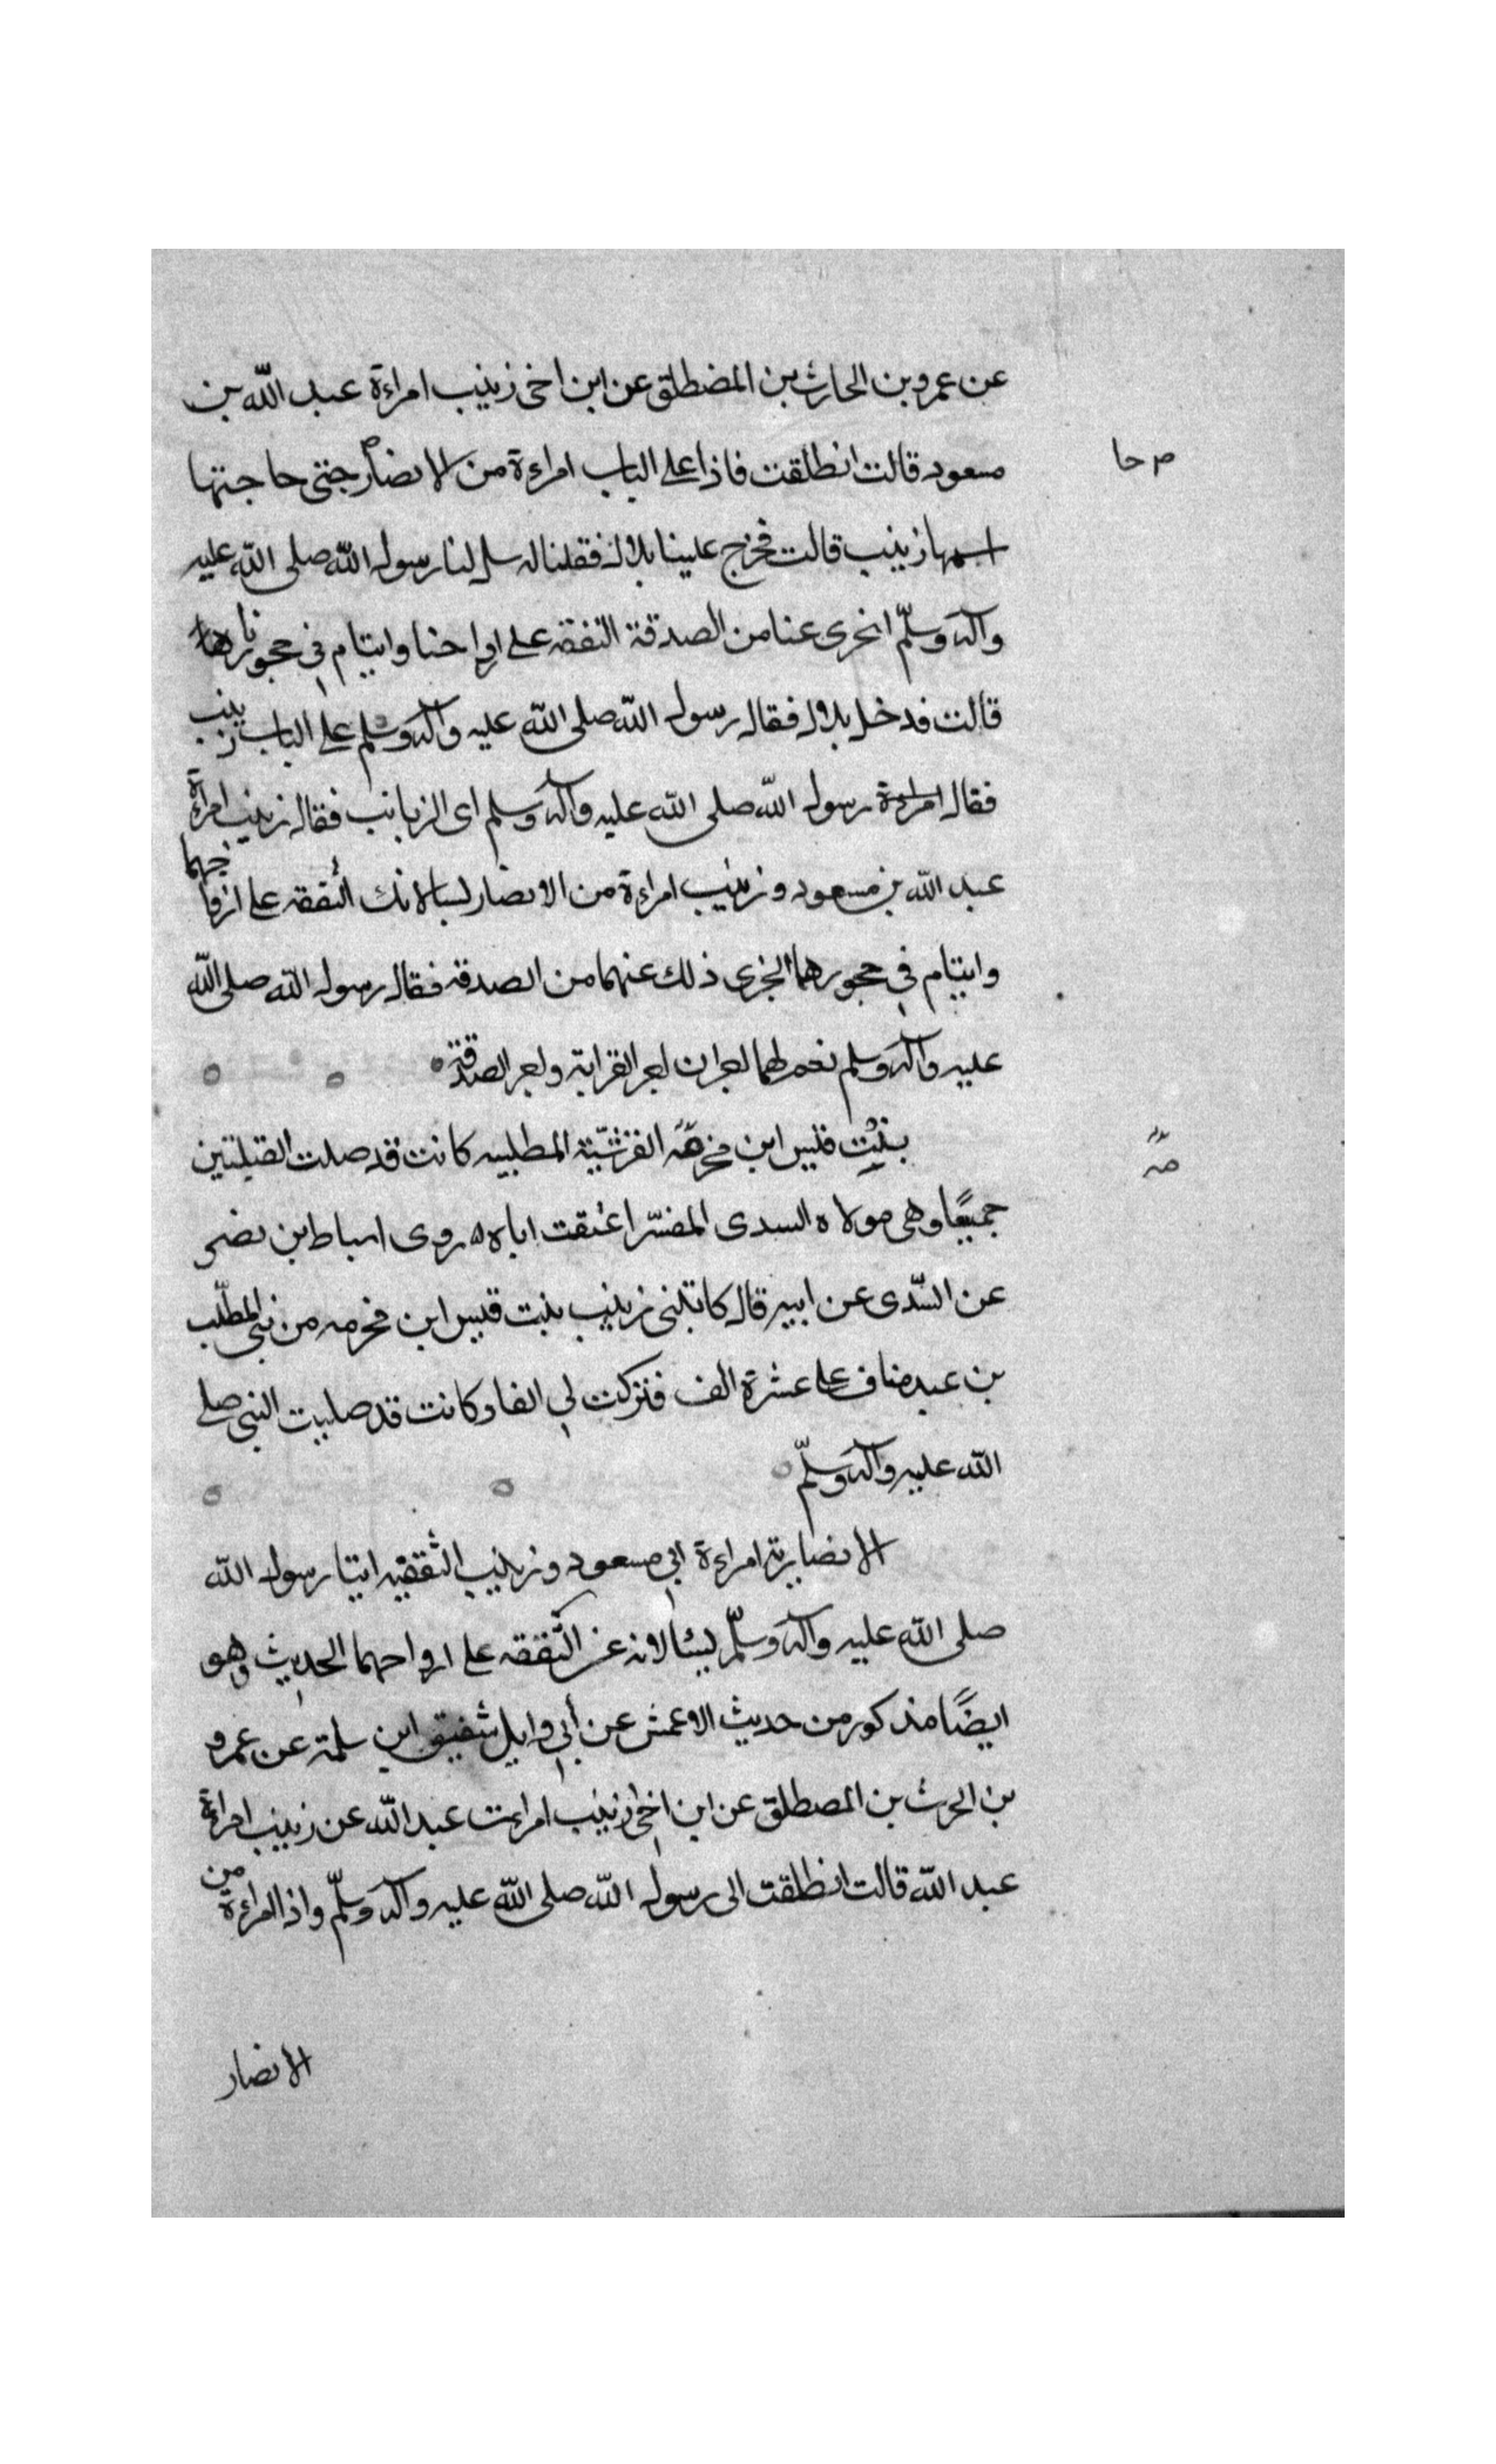 عن عمرو بن الحارث بن المضطلق عن ابن اخى زينب امراءة عبد الله بن
مسعود قالت انطلقت فاذا على الباب امراءة من الانصار جتى حاجتها
ص حا
اسمها زينب قالت فخرج علينا بلال فقلنا له سل لنا رسول الله صلى الله عليه
وآله وسلّم انجرى عنا من الصدقة النفقه على ارواحنا وايتام فى حجورنا
قالت فدخل بلال فقال رسول الله صلى الله عليه وآله وسلم على الباب زينب
فقال رسول الله صلى الله عليه وآله وسلم اى الزيانب فقال زينب امراءة
عبد الله بن مسعود وزينب امراءة من الانصار النفقه على ازواجهما
وايتام في حجورهما ايجزى ذلك عنهما من الصدقه فقال رسول الله صلى الله
عليه وآله وسلم نعم لهما اجران اجر القرابة واجر الصدقة
بنت قيس ابن مخرمه القرشيّة المطلبيه كانت قد صلت القبلتين
مه
جميعًا وهى مولاه السدى المفسّر اعتقت اباه روى اسباط ابن نصر
عن السّدى عن ابيه قال كاتبتنى زينب بنت قيس ابن مخرمه من بنى المطلّب
بن عبد مناف على عشرة الف فتركت لي الفا وكانت قد صليت النبى صلى
الله عليه وآله وسلّم
الانصارية امراءة ابي مسعود وزينب الثقفيه اتيتا رسول الله
صلى الله عليه وآله وسلّم يسئالانه عن النّفقه على ارواحهما الحديث وهو
ايضًا مذكور من حديث الاعمش عن أبي وايل شفيق ابن سلمة عن عمرو
بن الحرث بن المصطلق عن ابن اخى زينب امراءت عبد الله عن زينب امراءة
عبد الله قالت انطلقت الى رسول الله صلى الله عليه وآله وسلّم واذا امراءة من
الانصار